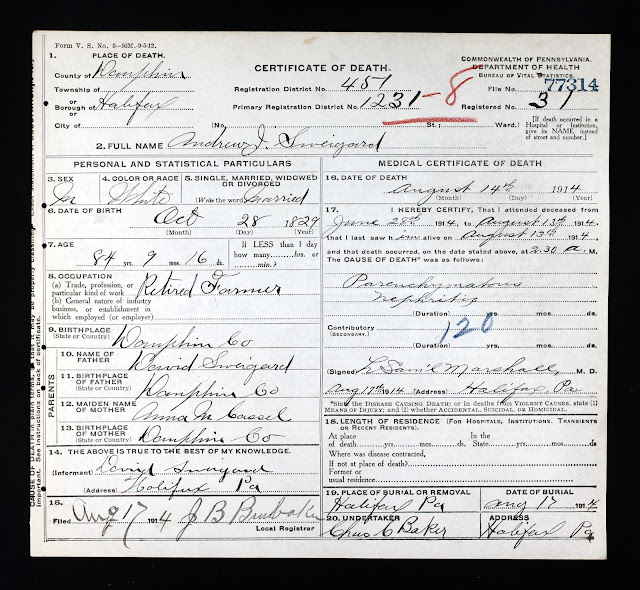 Form V. S. No. 5—50M.-9-5-12.
1. PLACE OF DEATH.
County of Dauphin
Township of or
Borough of Halifax
City of (No. St.; Ward.)
CERTIFICATE OF DEATH.
Registration District No. 451
Primary Registration District No. 1231-8
COMMONWEALTH OF PENNSYLVANIA.
DEPARTMENT OF HEALTH
BUREAU OF VITAL STATISTICS.
File No. 77314
Registered No. 31
[If death occurred in a Hospital or Institution, give its NAME instead of street and number.]
2. FULL NAME Andrew J. Sweigard
PERSONAL AND STATISTICAL PARTICULARS
3. SEX
M
4. COLOR OR RACE
White
5. SINGLE, MARRIED, WIDOWED OR DIVORCED
(Write the word) Married
6. DATE OF BIRTH
Oct 28 1829
(Month) (Day) (Year)
7. AGE
84 yrs. 9 mos. 16 ds.
If LESS than 1 day how many hrs. or min.?
8. OCCUPATION
(a) Trade, profession, or particular kind of work
(b) General nature of industry business, or establishment in which employed (or employer)
Retired Farmer
9. BIRTHPLACE
(State or Country)
Dauphin Co
PARENTS
10. NAME OF FATHER
David Sweigard
11. BIRTHPLACE OF FATHER
(State or Country)
Dauphin Co
12. MAIDEN NAME OF MOTHER
Anna M Cassel
13. BIRTHPLACE OF MOTHER
(State or Country)
Dauphin Co
14. THE ABOVE IS TRUE TO THE BEST OF MY KNOWLEDGE.
(Informant) David Sweigard
(Address) Halifax Pa
15.
Filed Aug 17 1914 J B Brubaker
Local Registrar
MEDICAL CERTIFICATE OF DEATH
16. DATE OF DEATH
August 14th, 1914
(Month) (Day) (Year)
17. I HEREBY CERTIFY, That I attended deceased from
June 28th 1914, to August 13th 1914,
that I last saw him alive on August 13th 1914,
and that death occurred, on the date stated above, at 2.30 a. M.
The CAUSE OF DEATH* was as follows:
Parenchymatous
Nephritis
(Duration) yrs. mos. ds.
120
Contributory
(SECONDARY.)
(Duration) yrs. mos. ds.
(Signed) Sam'l Marshall, M. D.
Aug 17th 1914 (Address) Halifax Pa
*State the DISEASE CAUSING DEATH; or in deaths from VIOLENT CAUSES, state (1) MEANS OF INJURY; and (2) whether ACCIDENTAL, SUICIDAL, OR HOMICIDAL.
18. LENGTH OF RESIDENCE (FOR HOSPITALS, INSTITUTIONS, TRANSIENTS OR RECENT RESIDENTS).
At place of death yrs. mos. ds. In the State yrs. mos. ds.
Where was disease contracted,
if not at place of death?
Former or
usual residence
19. PLACE OF BURIAL OR REMOVAL
Halifax Pa
DATE OF BURIAL
Aug 17 1914
20. UNDERTAKER
Chas C Baker
ADDRESS
Halifax Pa
important. See instructions on back of certificate.